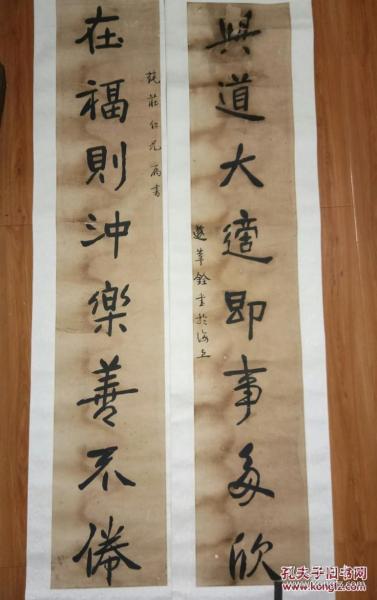 與道大適即事多欣
銓書於海上
在福則沖樂善不倦
莊仁兄屬書
孔夫子旧书网